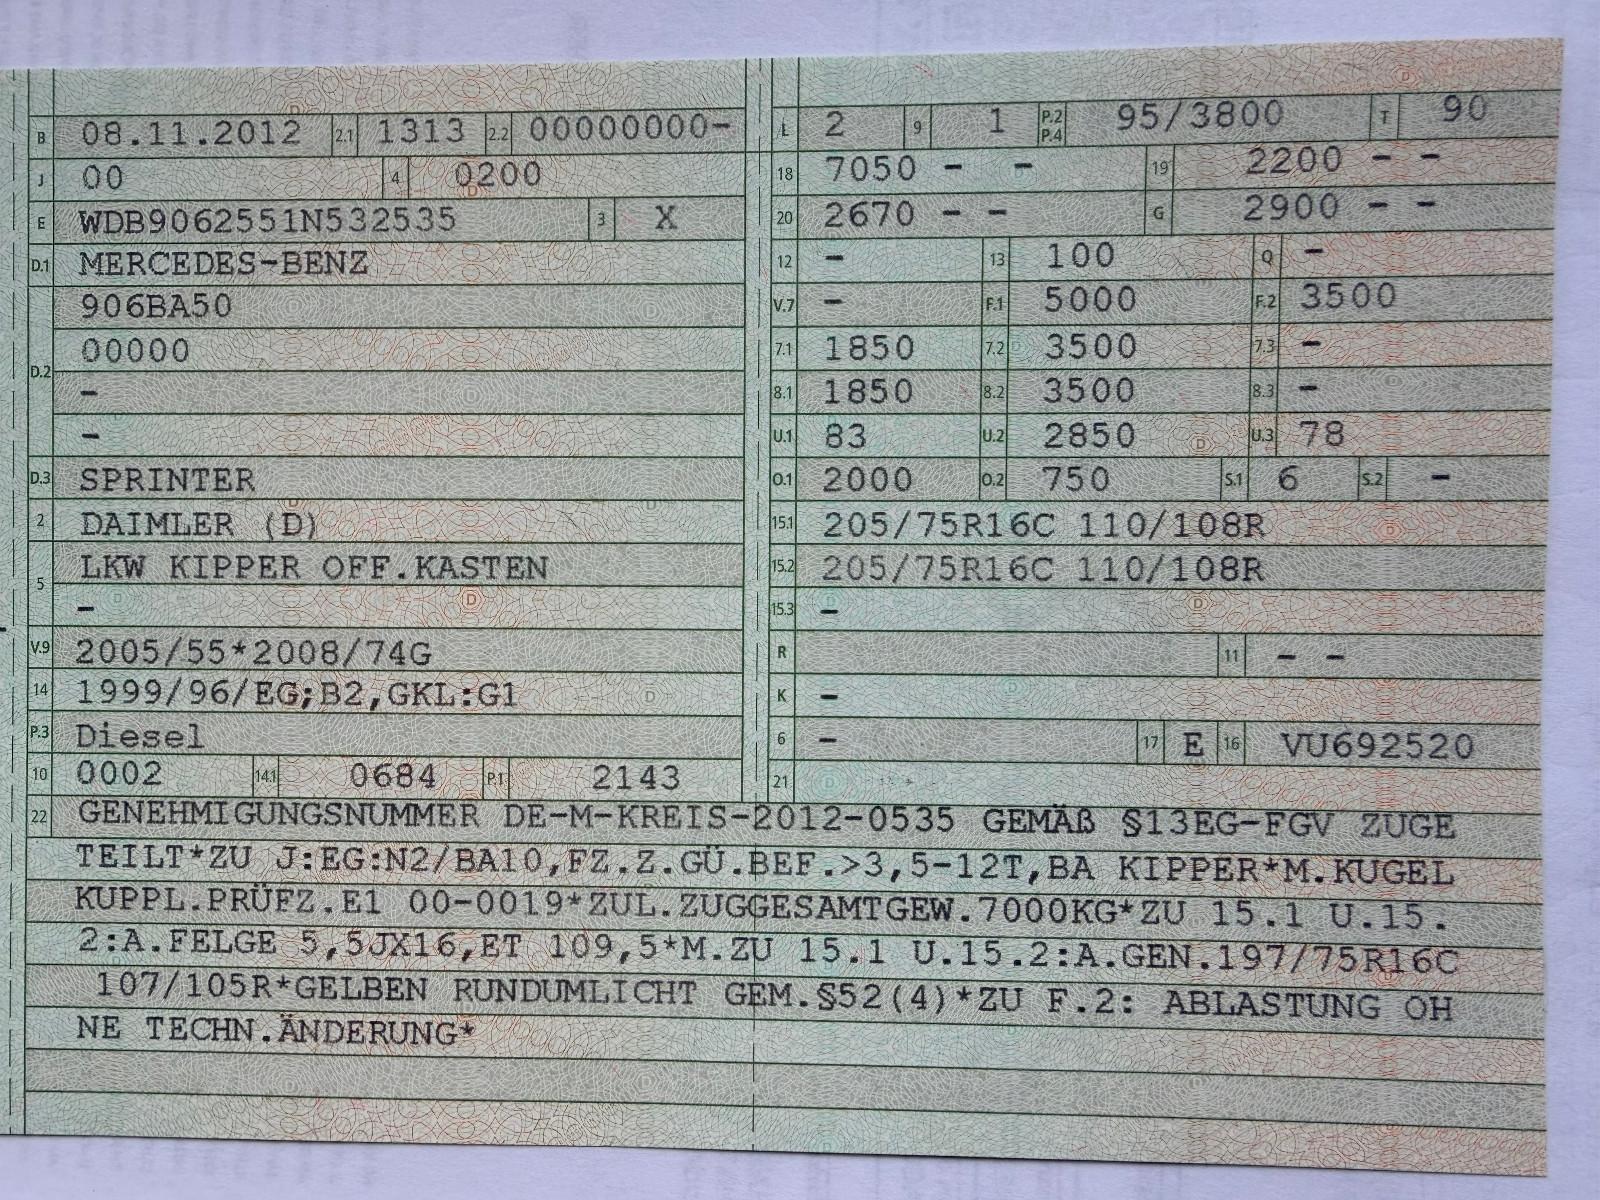 B 08.11.2012 2.1 1313 2.2 00000000-
J 00 4 0200
E WDB9062551N532535 3 X
D.1 MERCEDES-BENZ
906BA50
D.2 00000
-
-
D.3 SPRINTER
2 DAIMLER (D)
5 LKW KIPPER OFF.KASTEN
-
V.9 2005/55*2008/74G
14 1999/96/EG;B2,GKL:G1
P.3 Diesel
10 0002 14.1 0684 P.1 2143
L 2 9 1 P.2 P.4 95/3800 T 90
18 7050 - - 19 2200 - -
20 2670 - - G 2900 - -
12 - 13 100 Q -
V.7 - F.1 5000 F.2 3500
7.1 1850 7.2 3500 7.3 -
8.1 1850 8.2 3500 8.3 -
U.1 83 U.2 2850 U.3 78
O.1 2000 O.2 750 S.1 6 S.2 -
15.1 205/75R16C 110/108R
15.2 205/75R16C 110/108R
15.3 -
R 11 - -
K -
6 - 17 E 16 VU692520
21
22 GENEHMIGUNGSNUMMER DE-M-KREIS-2012-0535 GEMÄß §13EG-FGV ZUGE
TEILT*ZU J:EG:N2/BA10,FZ.Z.GÜ.BEF.>3,5-12T,BA KIPPER*M.KUGEL
KUPPL.PRÜFZ.E1 00-0019*ZUL.ZUGGESAMTGEW.7000KG*ZU 15.1 U.15.
2:A.FELGE 5,5JX16,ET 109,5*M.ZU 15.1 U.15.2:A.GEN.197/75R16C
107/105R*GELBEN RUNDUMLICHT GEM.§52(4)*ZU F.2: ABLASTUNG OH
NE TECHN.ÄNDERUNG*